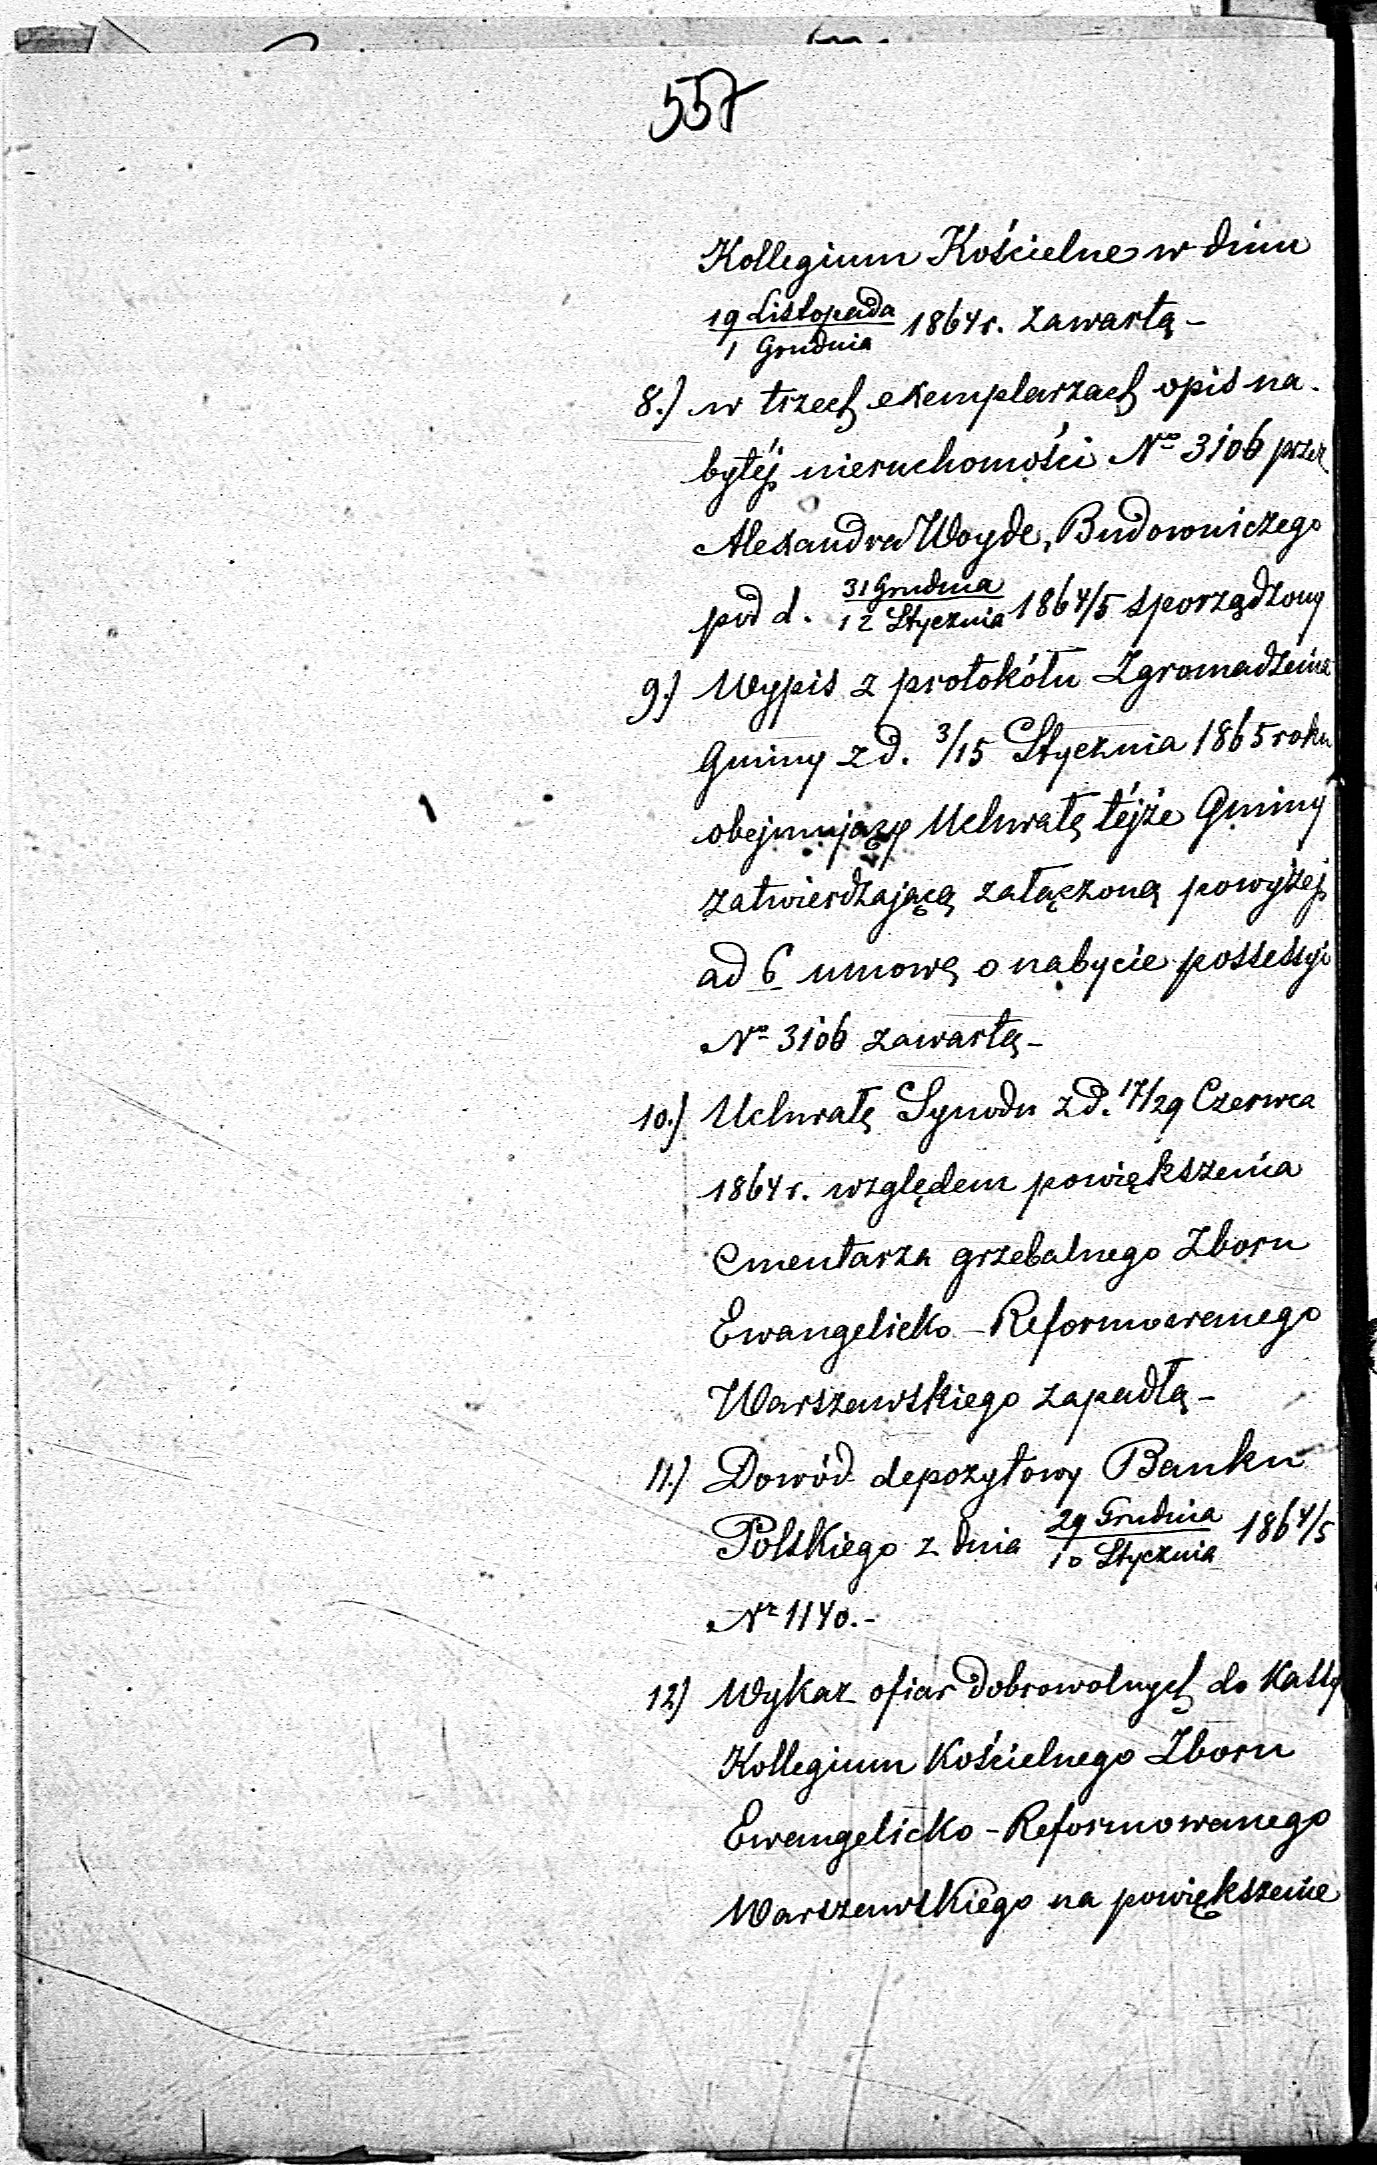 557
Kollegium Kościelne w dniu
19 Listopada / 1 Grudnia 1864 r. zawartą -
8.) w trzech exemplarzach opis na-
bytéj nieruchomości No 3106 przez
Alexandra Woyde, Budowniczego
pod d. 31 Grudnia / 12 Stycznia 1864/5 sporządzony
9.) Wypis z protokółu Zgromadzenia
Gminy z d. 3/15 Stycznia 1865 roku
obejmujący Uchwałę téjże Gminy
zatwierdzającą załączoną powyżej
ad 6 umowę o nabycie possessyi
No 3106 zawartą -
10.) Uchwałę Synodu z d. 17/29 Czerwca
1864 r. względem powiększenia
Cmentarza grzebalnego Zboru
Ewangelicko - Reformowanego
Warszawskiego zapadłą -
11.) Dowód depozytowy Banku
Polskiego z dnia 29 Grudnia / 10 Stycznia 1864/5
Nr 1140. -
12) Wykaz ofiar dobrowolnych do Kassy
Kollegium Kościelnego Zboru
Ewangelicko - Reformowanego
Warszawskiego na powiększenie